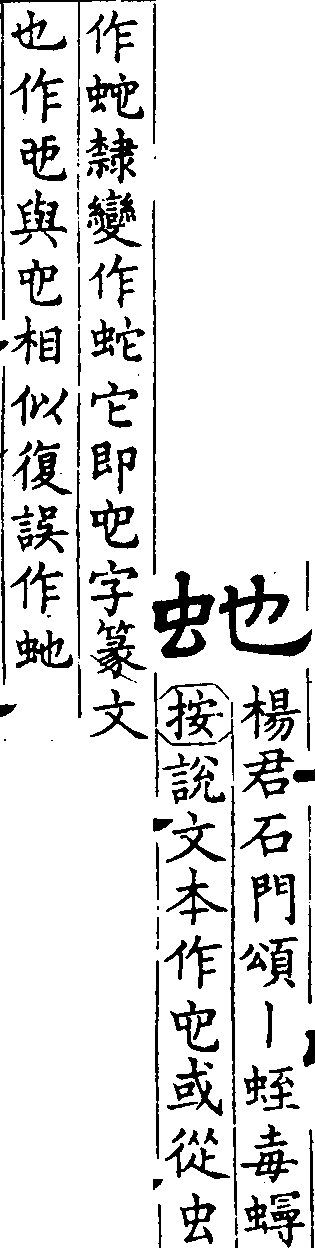 虵
楊君石門頌丨蛭毒蟃
按說文本作它或從虫
作蛇隸變作蛇它即它字篆文
也作與它相似復誤作虵